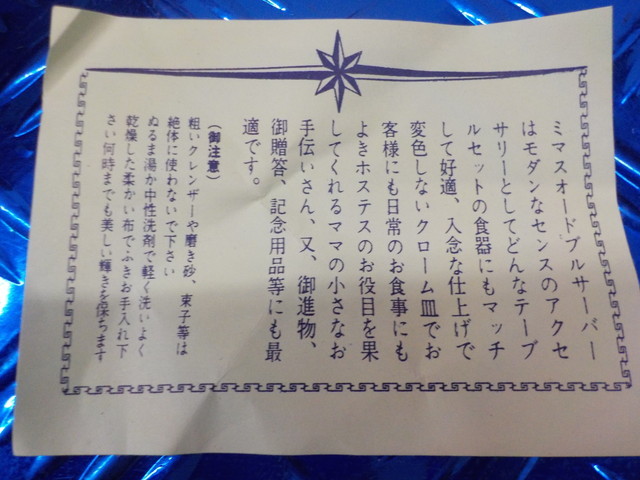 ミマスオードブルサーバー
はモダンなセンスのアクセ
サリーとしてどんなテーブ
ルセットの食器にもマッチ
して好適、入念な仕上げで
変色しないクローム皿でお
客様にも日常のお食事にも
よきホステスのお役目を果
してくれるママの小さなお
手伝いさん、又、御進物、
御贈答、記念用品等にも最
適です。
(御注意)
粗いクレンザーや磨き砂、束子等は
絶体に使わないで下さい
ぬるま湯か中性洗剤で軽く洗いよく
乾燥した柔かい布でふきお手入れ下
さい何時までも美しい輝きを保ちます